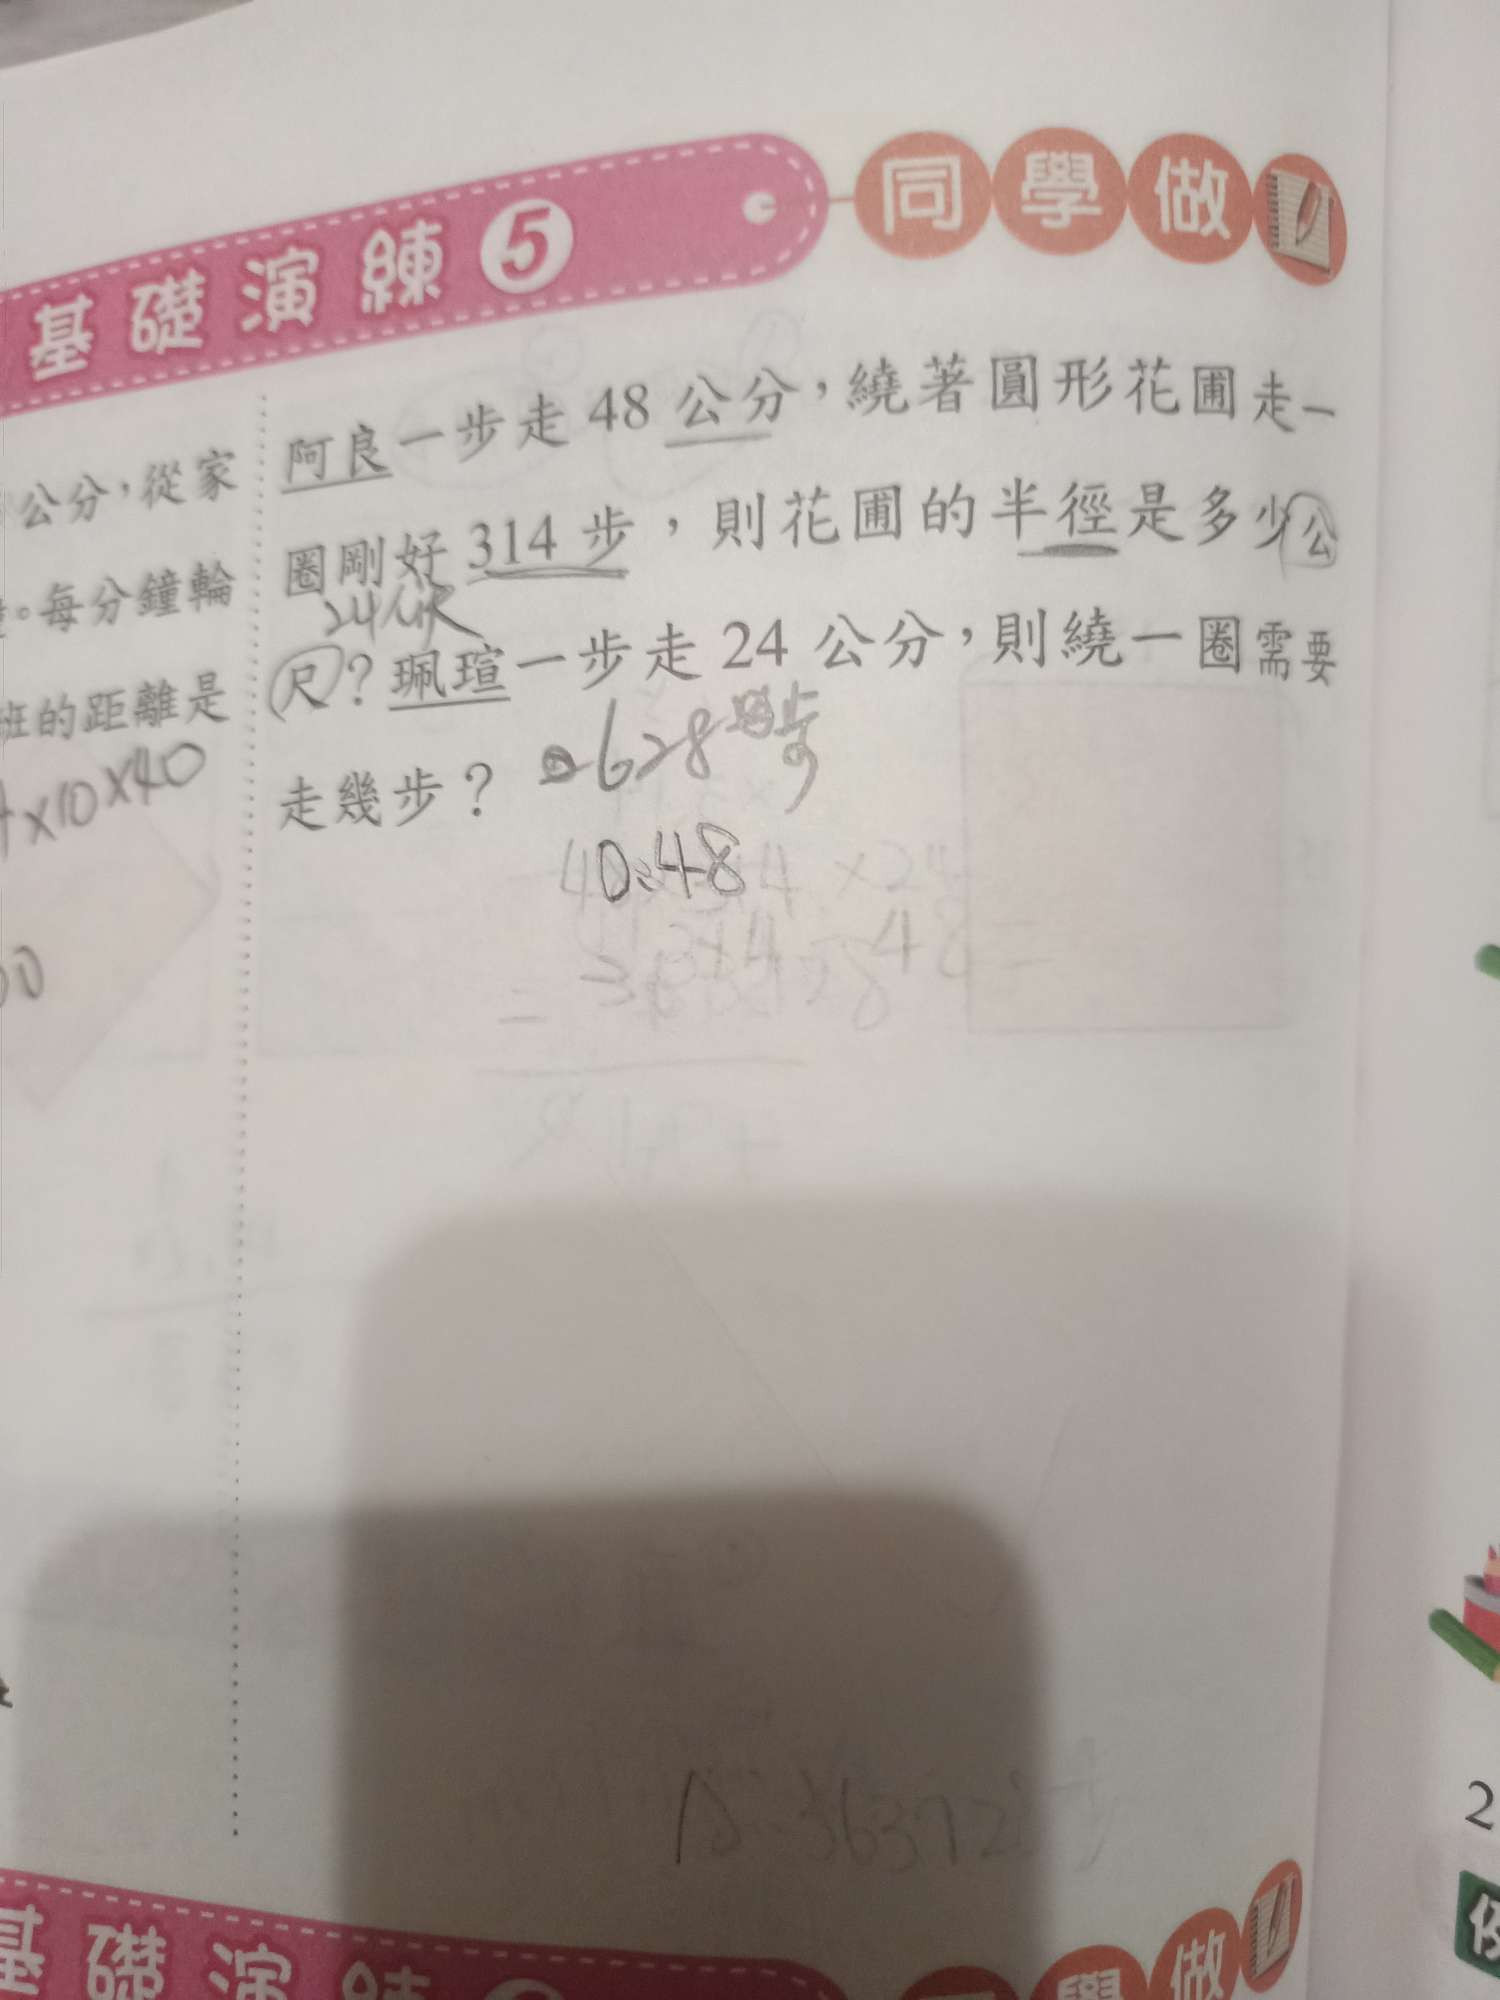 基礎演練5 同學做
阿良一步走 48 公分，繞著圓形花圃走一
圈剛好 314 步，則花圃的半徑是多少公
24公尺
尺？珮瑄一步走 24 公分，則繞一圈需要
走幾步？
628
步
40.48
公分，從家
。每分鐘輪
班的距離是
×10×40
00
基礎演練
學做
2